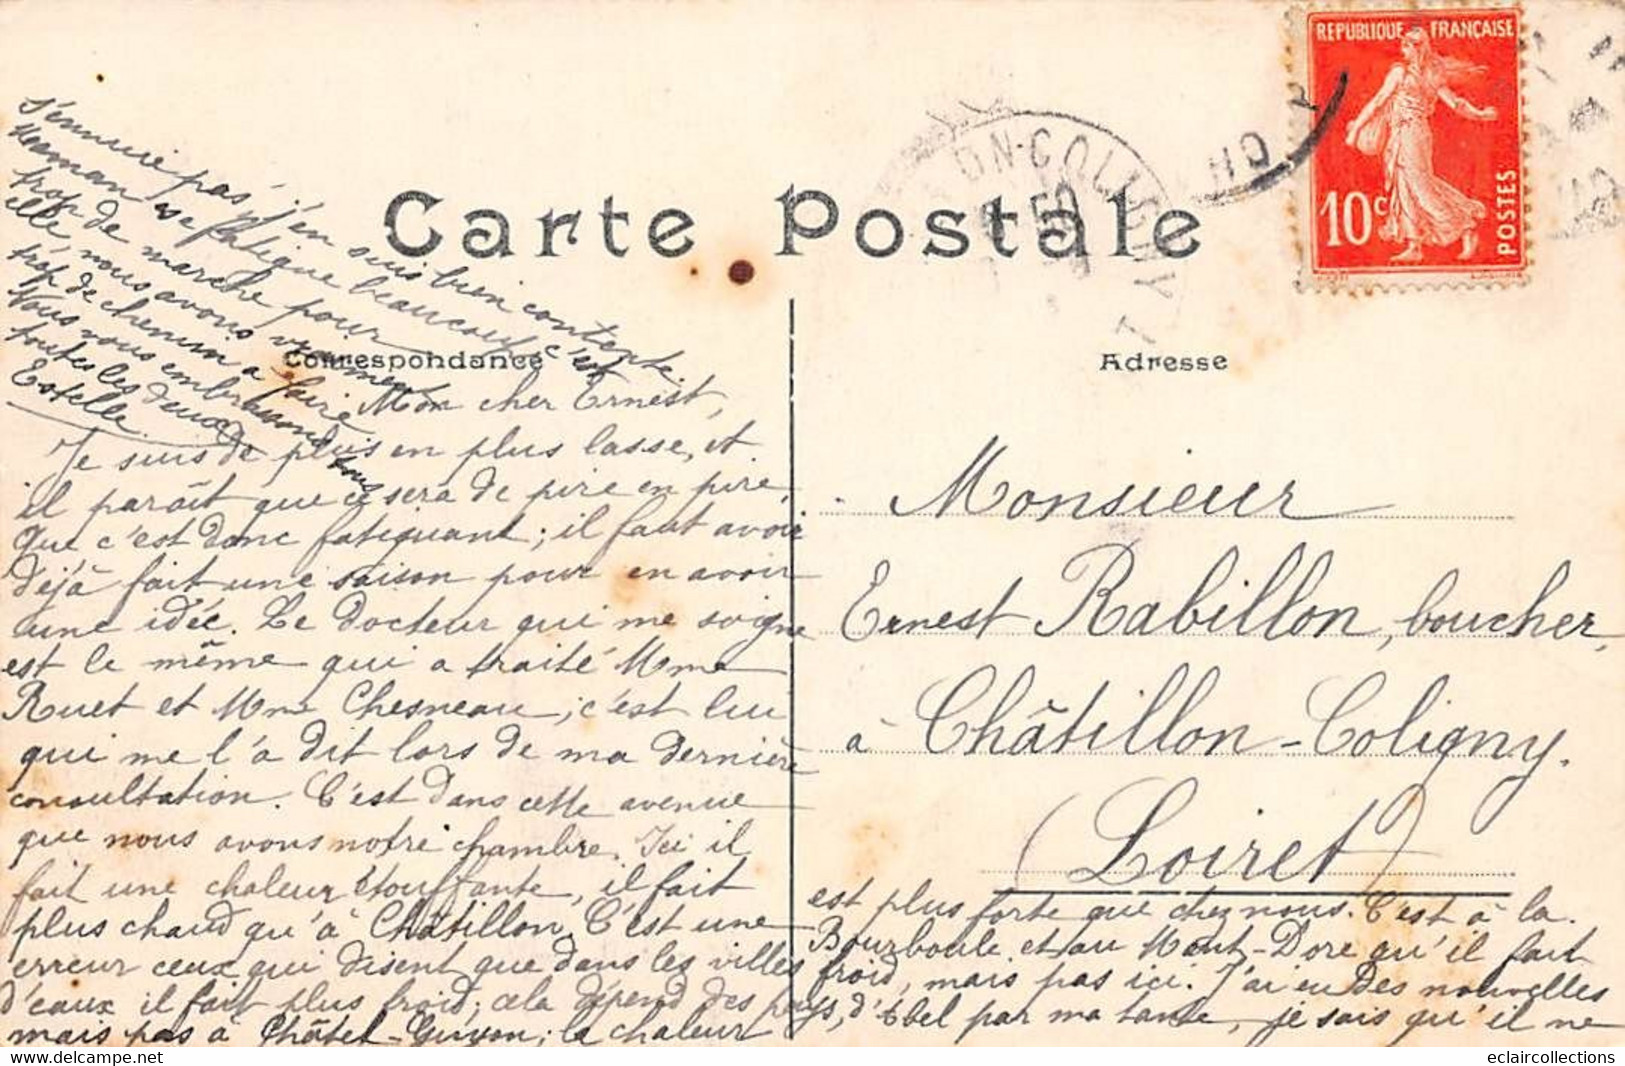 REPUBLIQUE FRANÇAISE
10c
POSTES
ON-COLIGNY
Carte Postale
Correspondance
Adresse
Mon cher Ernest,
Je suis de plus en plus lasse, et
il paraît que ce sera de pire en pire,
que c'est donc fatiguant; il faut avoir
déjà fait une saison pour en avoir
une idée. Le docteur qui me soigne
est le même qui a traité Mme
Ruet et Mme Chesneau; c'est lui
qui me l'a dit lors de ma dernière
consultation. C'est dans cette avenue
que nous avons notre chambre. Ici il
fait une chaleur étouffante, il fait
plus chaud qu'à Châtillon. C'est une
erreur ceux qui disent que dans les villes
d'eaux il fait plus froid; cela dépend des pays,
mais pas à Châtel-Guyon; la chaleur
est plus forte que chez nous. C'est à la
Bourboule et au Mont-Dore qu'il fait
froid, mais pas ici. J'ai eu des nouvelles
d'Abel par ma tante, je sais qu'il ne
s'ennuie pas, j'en suis bien contente.
Maman se fatigue beaucoup c'est
trop de marche pour
elle, nous avons vraiment
trop de chemin à faire
Nous vous embrassons tous
toutes les deux
Estelle
Monsieur
Ernest Rabillon, boucher,
à Châtillon-Coligny.
(Loiret)
eclaircollections